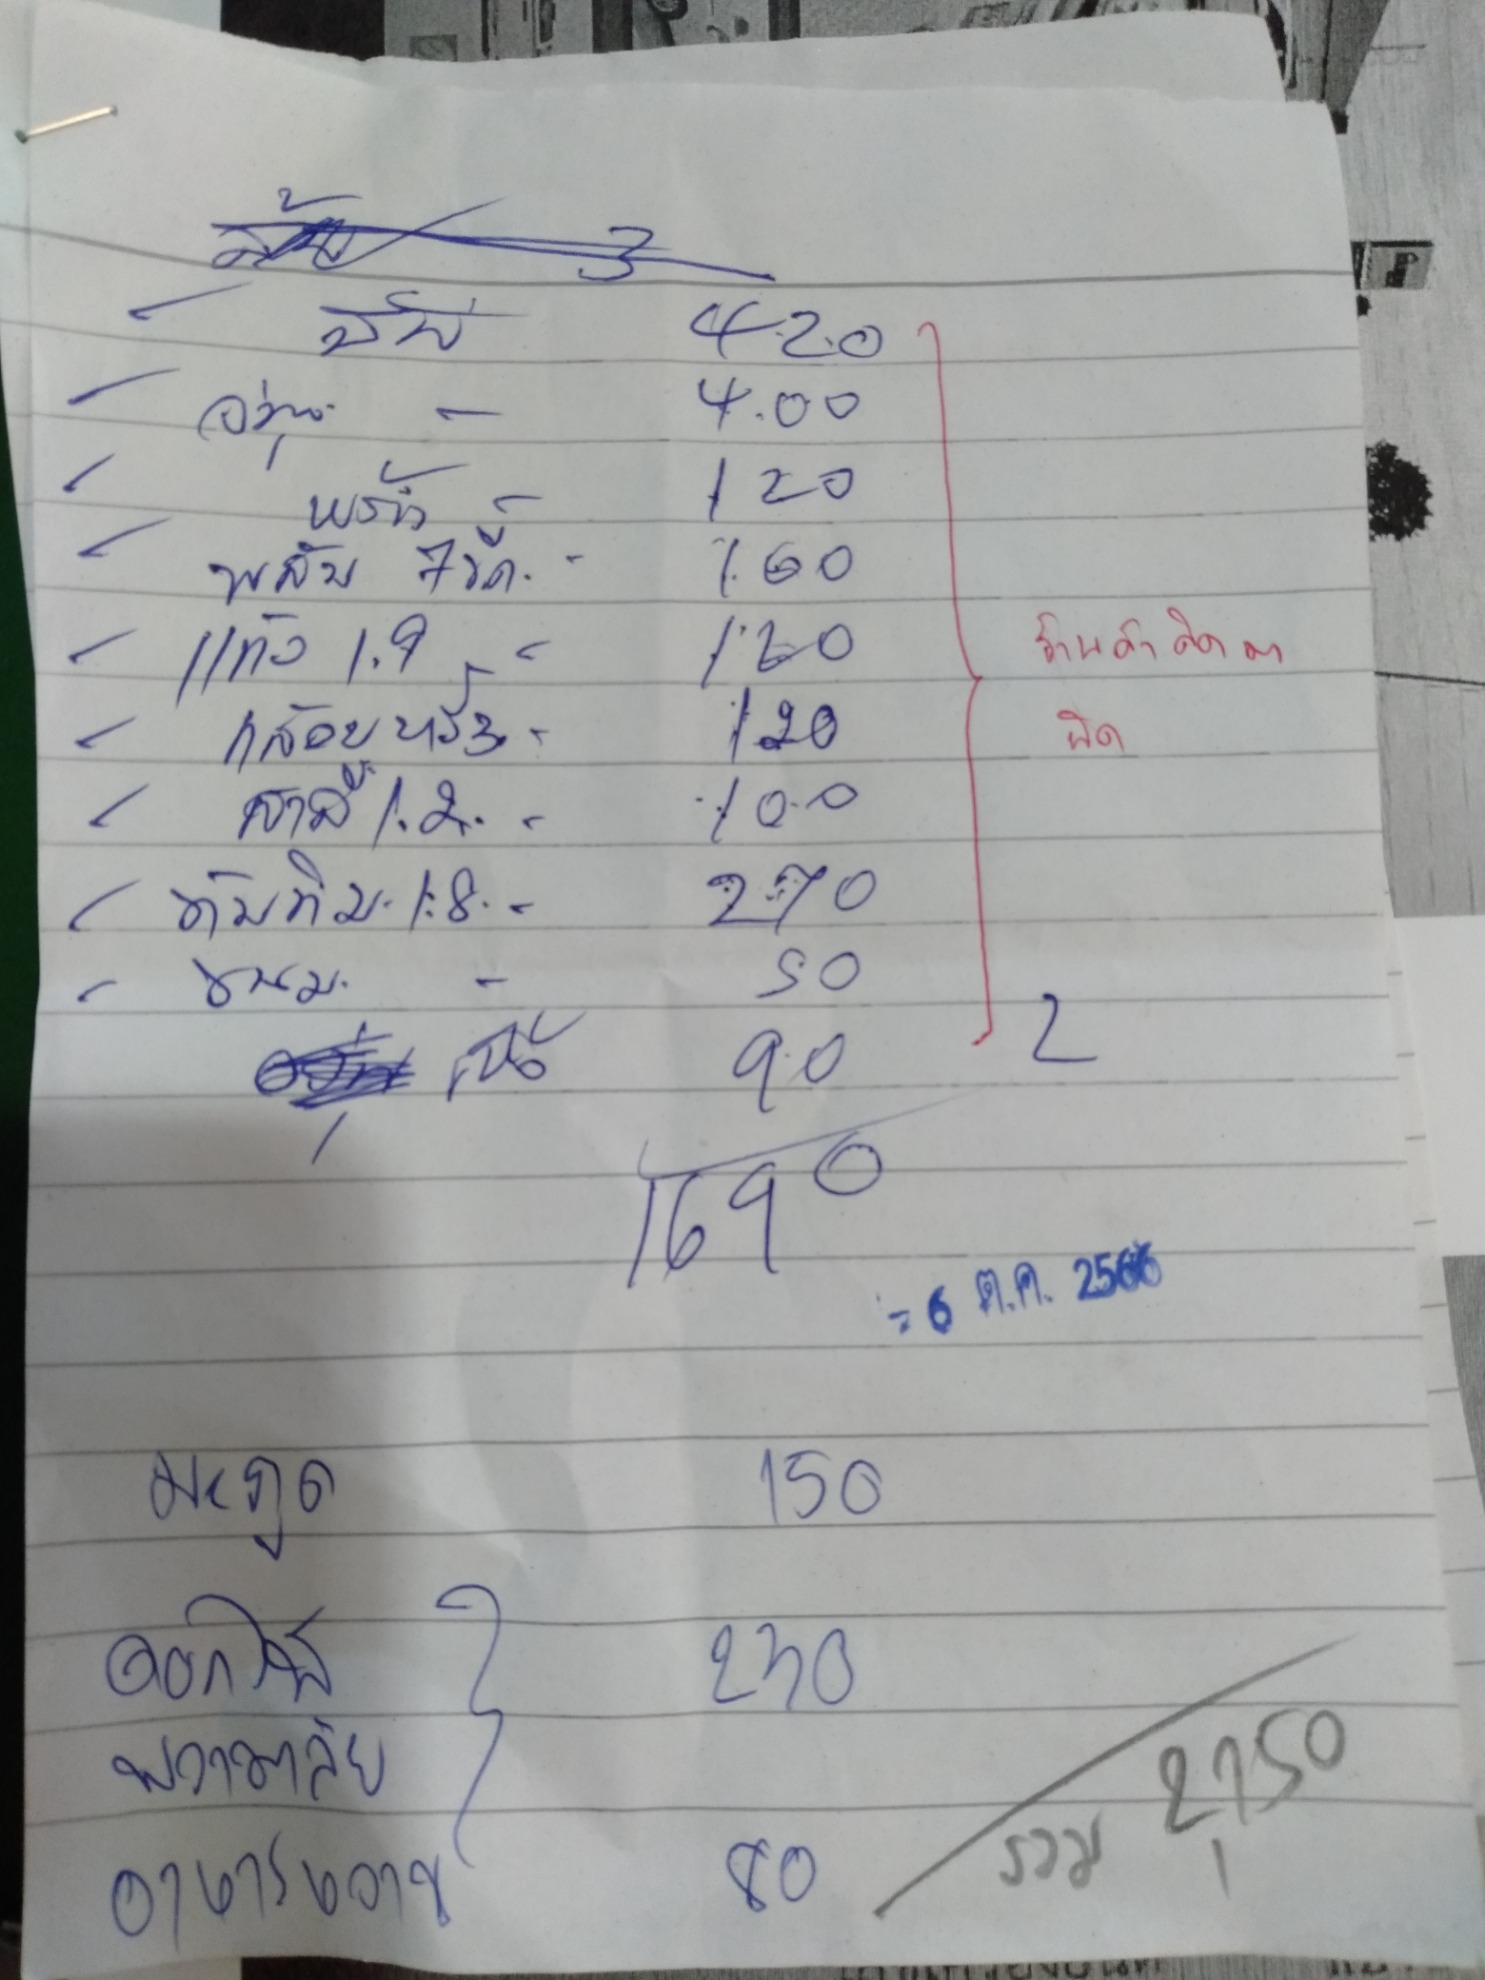 ส้ม 3
420
องุ่น - 400
120
พลับ 7 ขีด - 160
1.9 - 120
กล้วยหวี 3 - 120
สาลี่ 1.2 - 100
ทับทิม 1.8 - 270
ขนม - 50
90
1690
ร้านค้าคิดมา
ผิด
= 6 ต.ค. 2566
มะกูด 150
ดอกไม้ 230
พวงมาลัย
อาหารหวาน 80
รวม 2,150